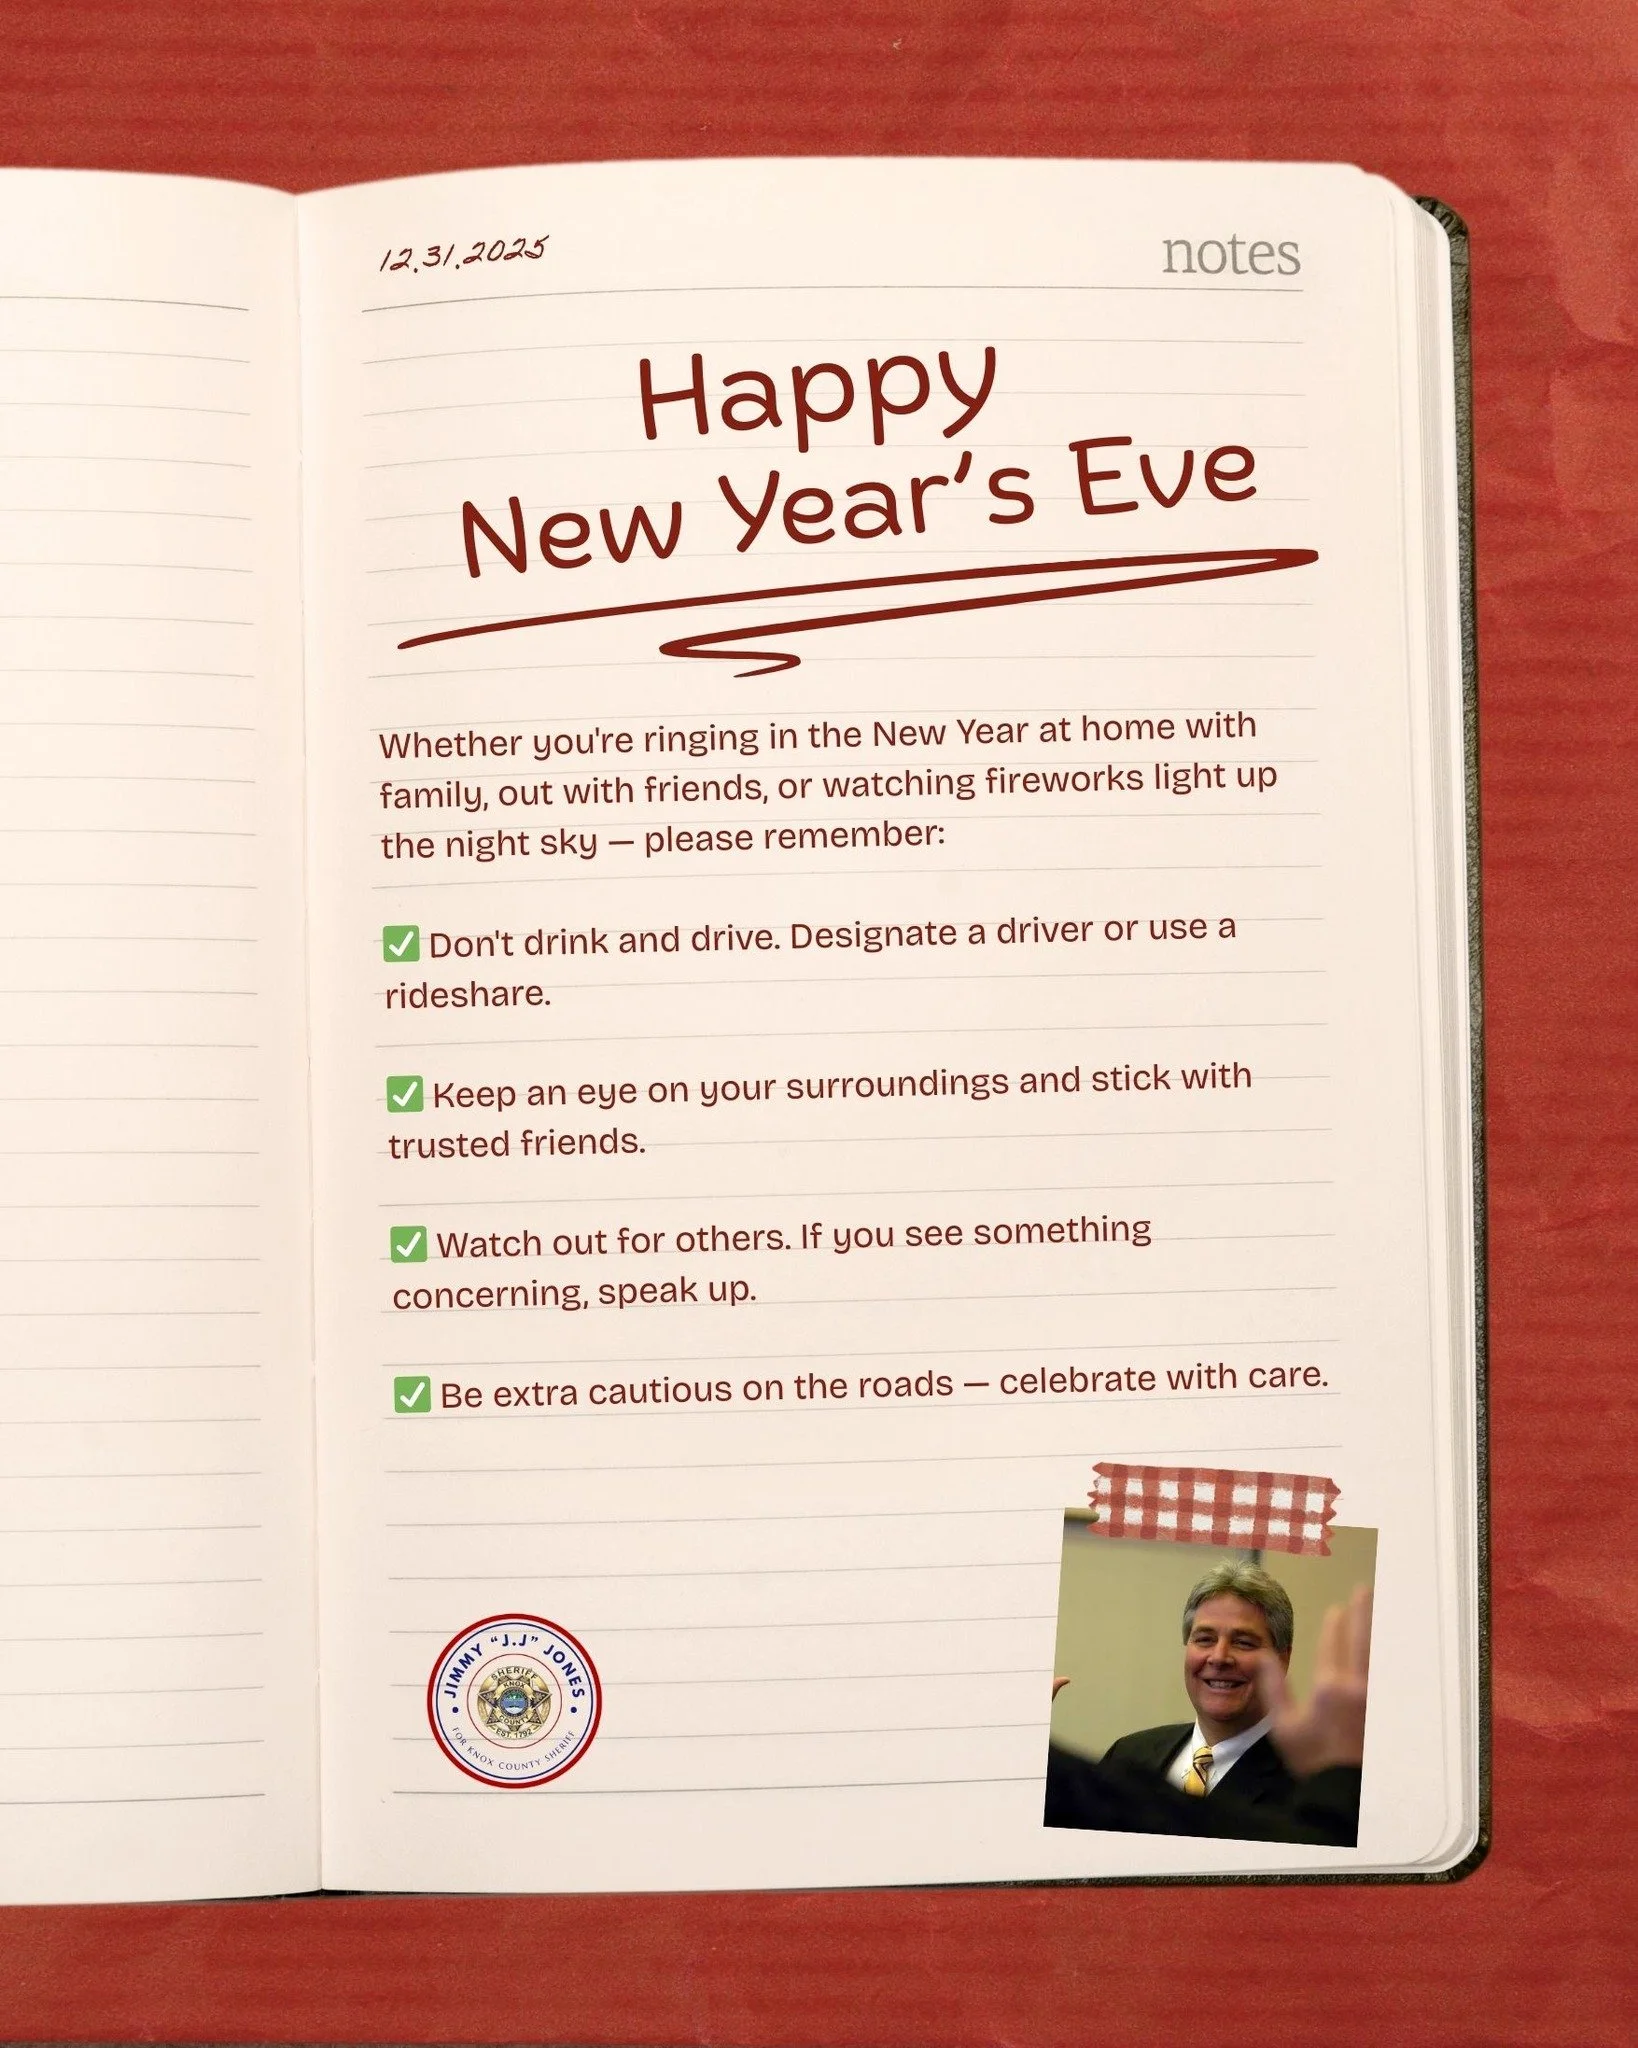 12.31.2025
notes
Happy
New Year's Eve
Whether you're ringing in the New Year at home with
family, out with friends, or watching fireworks light up
the night sky — please remember:
✅ Don't drink and drive. Designate a driver or use a
rideshare.
✅ Keep an eye on your surroundings and stick with
trusted friends.
✅ Watch out for others. If you see something
concerning, speak up.
✅ Be extra cautious on the roads — celebrate with care.
JIMMY “J.J” JONES
SHERIFF
KNOX
COUNTY
EST. 1792
FOR KNOX COUNTY SHERIFF